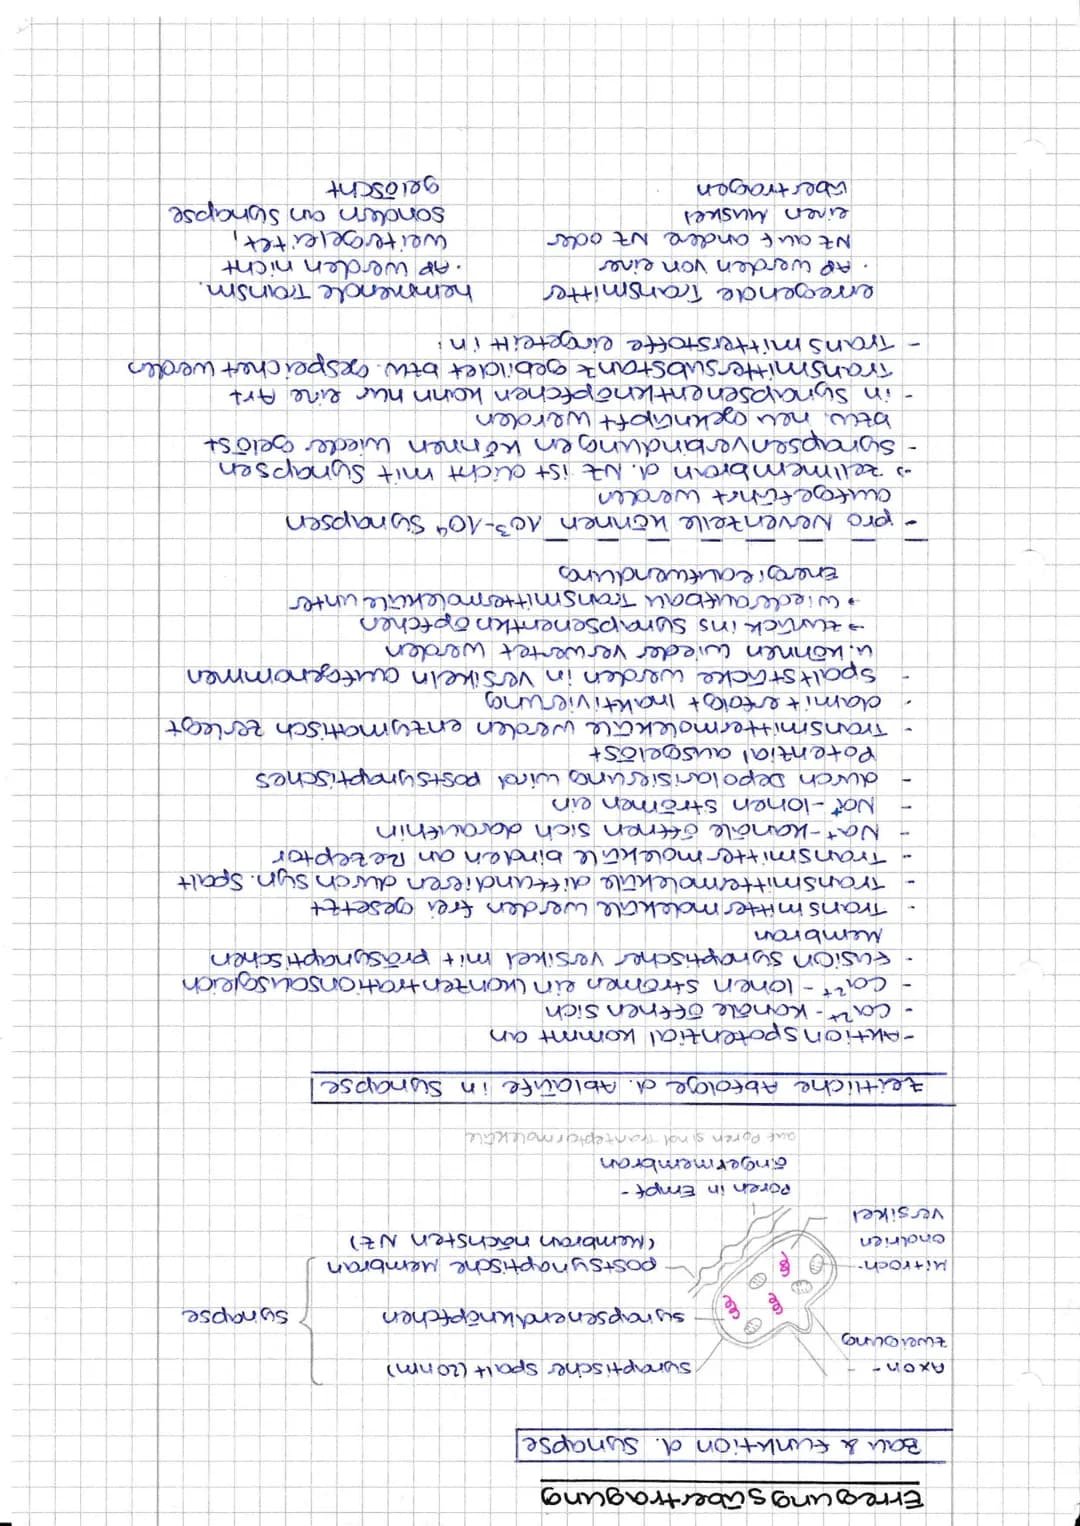 Erregungsübertragung
Bau & Funktion d. Synapse
Axon-
zweigung
Mitroch-
ondrien
Versikel
synaptischer Spalt (20nm)
synapsenendknöpfchen
postsynaptische Membran
(Membran nächsten NZ)
Synapse
Poren in Empf-
ängermembran
auf Poren sind
Zeitliche Abfolge d. Abläufe in Synapse
- Aktionspotential kommt an
- Ca²⁺ - Kanäle öffnen sich
- Ca²⁺ - Ionen strömen ein (Konzentrationsausgleich
- Fusion synaptischer Versikel mit präsynaptischen
Membran
- Transmittermoleküle werden frei gesetzt
- Transmittermoleküle diffundieren durch syn. Spalt
- Transmittermoleküle binden an Rezeptor
- Na⁺-Kanäle öffnen sich daraufhin
- Na⁺-Ionen strömen ein
- durch Depolarisierung wird postsynaptisches
Potential ausgelöst
- Transmittermoleküle werden enzymatisch zerlegt
- damit erfolgt Inaktivierung
- Spaltstücke werden in Versikeln aufgenommen
u. können wieder verwertet werden
→ zurück ins Synapsenentknöpfchen
→ Wiederaufbau Transmittermoleküle unter
Energieaufwendung
- pro Nevenzelle können 10³-10⁴ Synapsen
aufgeführt werden
→ Zellmembran d. NZ ist dicht mit Synapsen
- Synapsenverbindungen können wieder gelöst
bzw. neu geknüpft werden
- in Synapsenentknöpfchen kann nur eine Art
Transmittersubstanz gebildet bzw. gespeichert werden
- Transmitterstoffe eingeteilt in:
erregende Transmitter
· AP werden von einer
NZ auf andere NZ oder
einen Muskel
übertragen
hemmende Transm.
· AP werden nicht
weitergeleitet,
sondern an Synapse
gelöscht